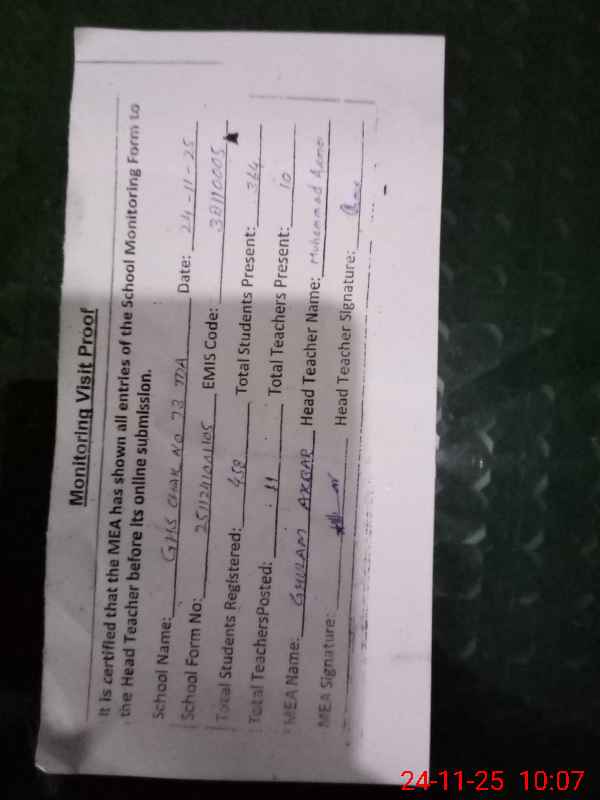 Monitoring Visit Proof
It is certified that the MEA has shown all entries of the School Monitoring Form to
the Head Teacher before its online submission.
School Name: GHS CHAK NO 73 MA Date: 24-11-25
School Form No: 2511241001105 EMIS Code: 38110005
Total Students Registered: 458 Total Students Present: 364
Total TeachersPosted: 11 Total Teachers Present: 10
MEA Name: GHULAM AKBAR Head Teacher Name: Muhammad
MEA Signature: Head Teacher Signature:
24-11-25 10:07